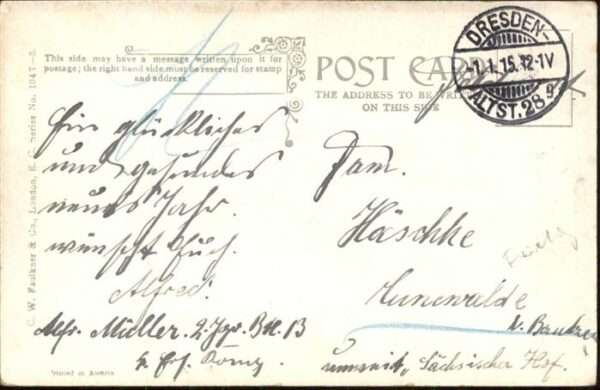 This side may have a message written upon it for
postage; the right hand side must be reserved for stamp
and address.
C. W. Faulkner & Co., London, E.C. Series No. 1347
Ein glückliches
und gesundes
neues Jahr
wünscht Euch
Alfred.
Alfr. Müller. 2. Btl. 13
Printed in Austria
POST CARD
THE ADDRESS TO BE WRITTEN
ON THIS SIDE
DRESDEN-
1.1.15.12-1V
ALTST. 28
Fam.
Häschke
Cunewalde
b. Bautzen
unweit „Sächsischer Hof.